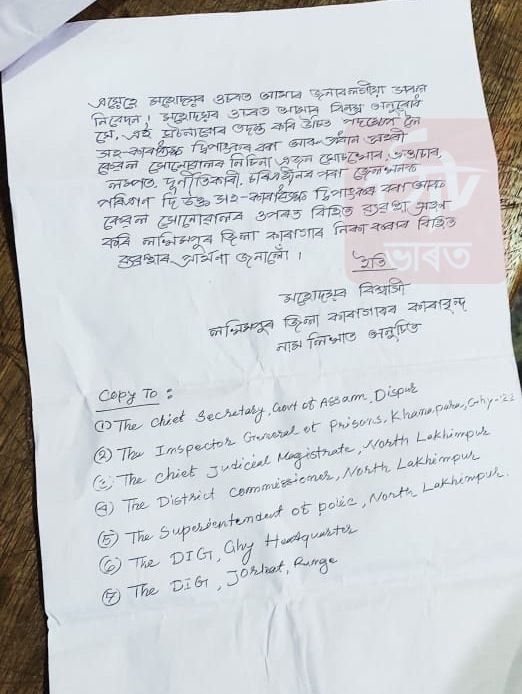 এতেকে মহোদয়ৰ ওচৰত আমাৰ
নিবেদন। মহোদয়ৰ ওচৰত আমাৰ বিনম্ৰ অনুৰোধ
যে, এই ঘটনাবোৰ তদন্ত কৰি উচিত পদক্ষেপ লৈ
দিপাংকৰ বৰা আৰু প্ৰধান প্ৰহৰী
সোনোৱালৰ নিচিনা এজন
লম্পট, দুৰ্নীতিকাৰী, চৰিত্ৰহীনৰ পৰা
দি উক্ত দিপাংকৰ বৰা আৰু
সোনোৱালৰ ওপৰত বিহিত ব্যৱস্থা গ্ৰহণ
কৰি লখিমপুৰ জিলা কাৰাগাৰ নিকা কৰাৰ বিহিত
ব্যৱস্থাৰ প্ৰাৰ্থনা জনালোঁ।
ইতি
ভাৰত
মহোদয়ৰ বিশ্বাসী
লখিমপুৰ জিলা কাৰাগাৰৰ কাৰাবৃন্দ
নাম লিখাত অনুচিত
Copy To :
(1) The Chief Secretary, Govt of Assam, Dispur
(2) The Inspector General of Prisons, Khanapara, Ghy-22
(3) The Chief Judicial Magistrate, North Lakhimpur
(4) The District Commissioner, North Lakhimpur
(5) The Superientendent of polic, North Lakhimpur.
(6) The DIG, Ghy Headquarter
(7) The DIG, Jorhat, Runge